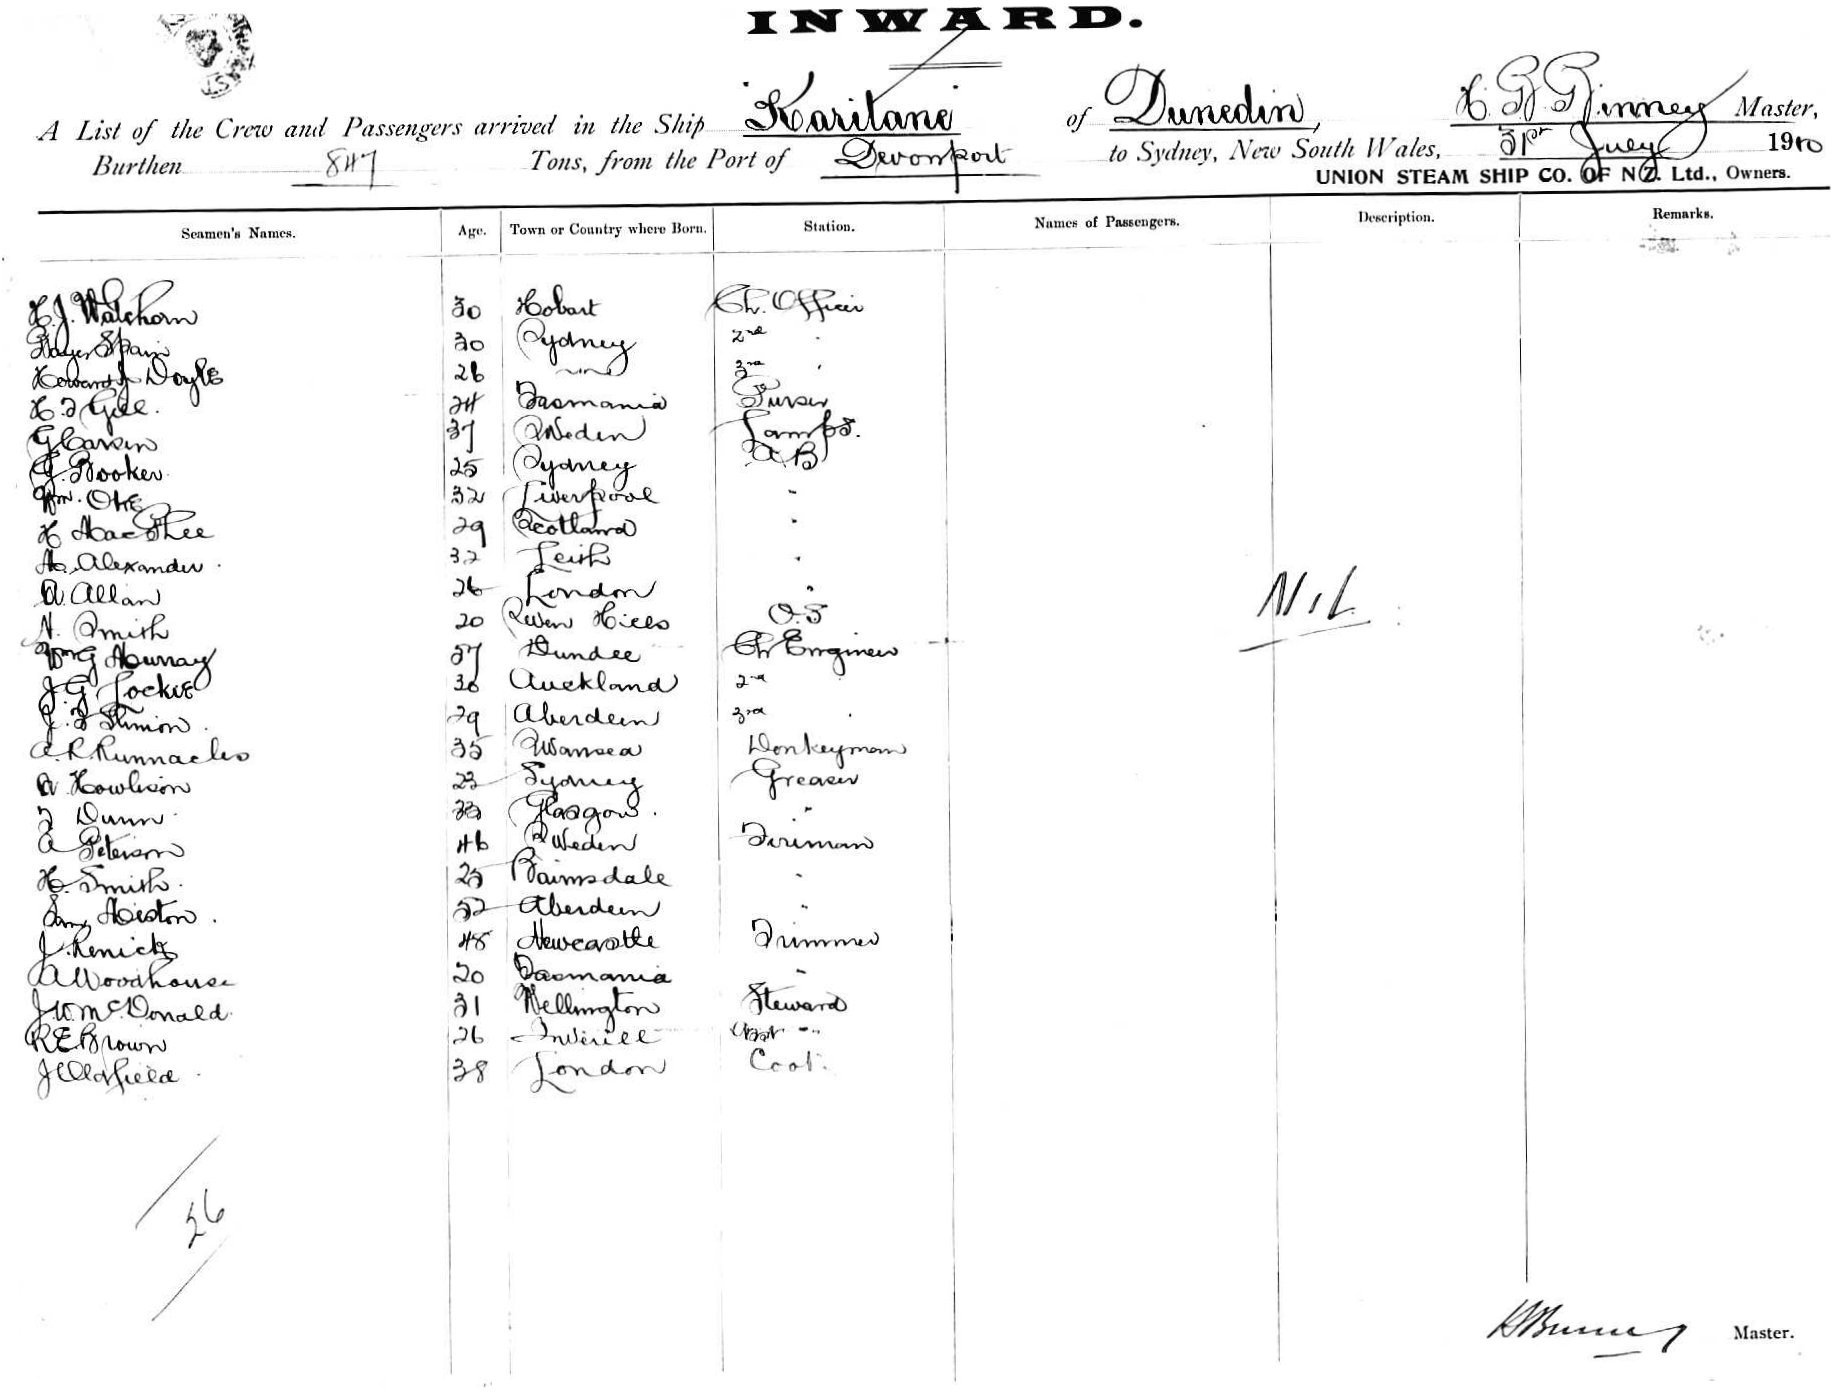 INWARD.
A List of the Crew and Passengers arrived in the Ship "Karitane" of Dunedin, Master,
Burthen 847 Tons, from the Port of Devonport to Sydney, New South Wales, 31st July 1910
UNION STEAM SHIP CO. OF N.Z. Ltd., Owners.
Seamen's Names. Age. Town or Country where Born. Station. Names of Passengers. Description. Remarks.
H. J. Walchorn 30 Hobart Ch. Officer
Spain 30 Sydney 2nd "
Howard J Doyle 26 " 3rd "
H F Gill. 24 Tasmania Purser
G Carsen 37 Sweden Lamps.
G. Booker 25 Sydney A B
Wm. 32 Liverpool "
H MacPhee 29 Scotland "
Alexander 32 Leith "
A. Allan 26 London "
N. Smith 20 Seven Hills O.S
Nil
Wm G Murray 57 Dundee Ch Engineer
J. G. Lockie 36 Auckland 2nd
J. 29 Aberdeen 3rd "
A. R. Runnacles 35 Swansea Donkeyman
A. Howlison 22 Sydney Greaser
F Dunn 33 Glasgow. "
A Peterson 46 Sweden Fireman
H. Smith. 25 Bairnsdale "
Heston. 52 Aberdeen "
J. Renick 48 Newcastle Trimmer
A Woodhouse 20 Tasmania "
J. W. McDonald 31 Wellington Steward
R E Brown 26 Inverell Asst "
J Oldfield 38 London Cook.
26
Master.